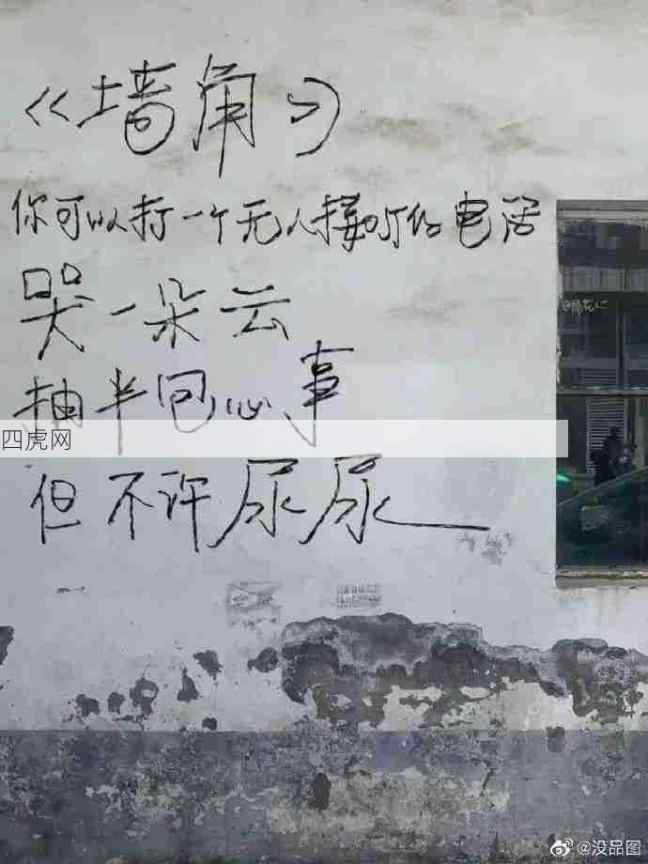 《墙角》
你可以打一个无人接听的电话
哭一朵云
抽半包心事
四虎网
但不许尿尿
@没品图